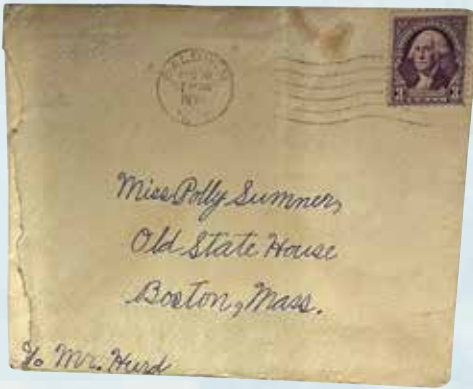 3 3
Miss Polly Sumner,
Old State House
Boston, Mass.
c/o Mr. Hurd